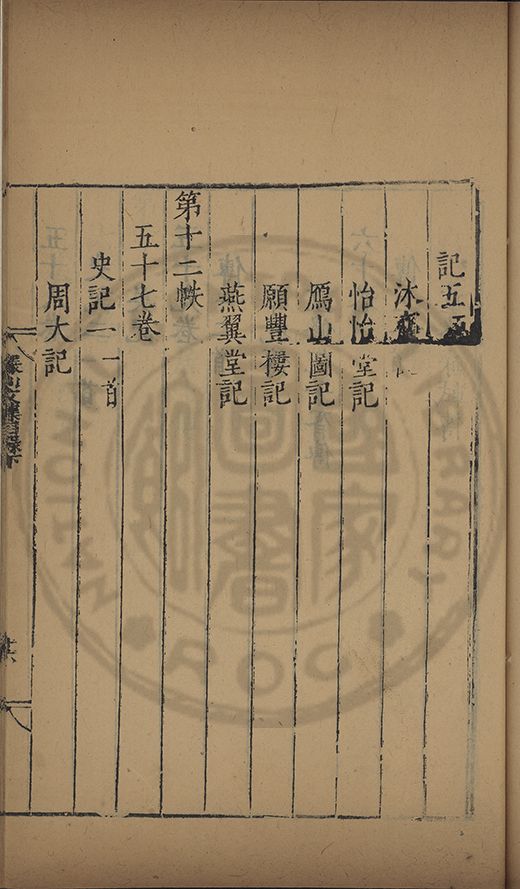 記五
沐
怡怡堂記
鴈山圖記
願豐樓記
燕翼堂記
第十二帙
五十七卷
史記一一首
周大記